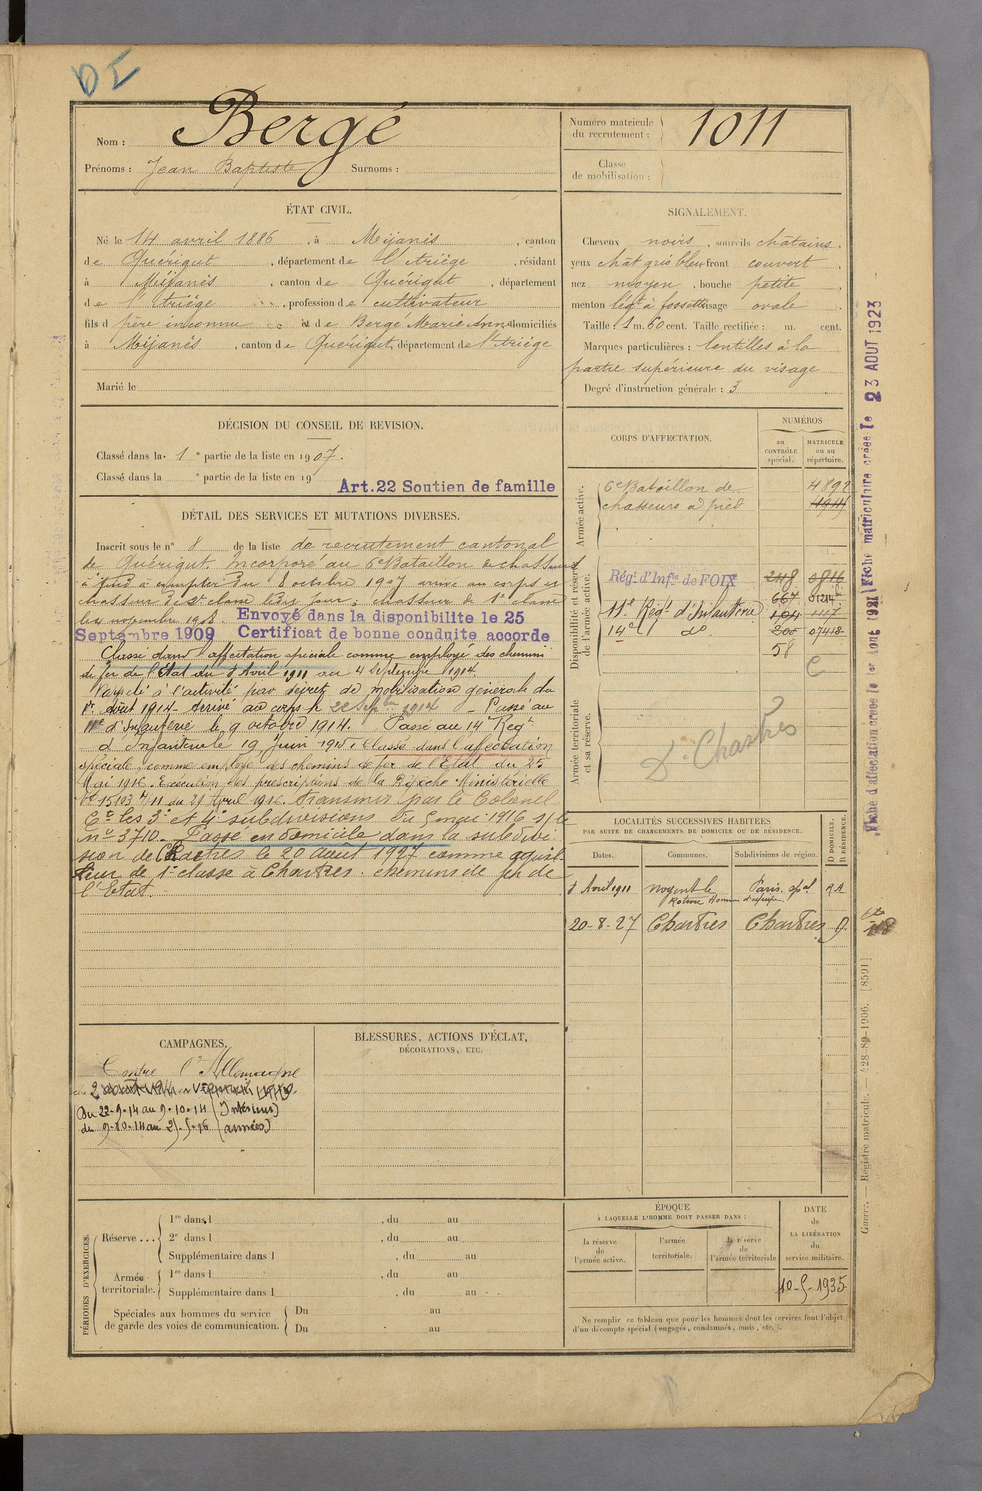 DI
Nom : Bergé
Prénoms : Jean Baptiste Surnoms :
Numéro matricule du recrutement : 1011
Classe de mobilisation :
ÉTAT CIVIL.
Né le 14 avril 1886, à Mijanès, canton
de Quérigut, département de l'Ariège, résidant
à Mijanès, canton de Quérigut, département
de l'Ariège, profession de cultivateur
fils d père inconnu et de Bergé Marie Anne domiciliés
à Mijanès, canton de Quérigut, département de l'Ariège
Marié le
SIGNALEMENT.
Cheveux noirs, sourcils châtains.
yeux chât gris bleu front couvert,
nez moyen, bouche petite,
menton lég.t à fossette visage ovale.
Taille : 1 m. 60 cent. Taille rectifiée : m. cent.
Marques particulières : lentilles à la
partie supérieure du visage
Degré d'instruction générale : 3
DÉCISION DU CONSEIL DE REVISION.
Classé dans la 1e partie de la liste en 1907.
Classé dans la e partie de la liste en 19
Art.22 Soutien de famille
DÉTAIL DES SERVICES ET MUTATIONS DIVERSES.
Inscrit sous le n° 8 de la liste de recrutement cantonal
de Quérigut. Incorporé au 6e Bataillon de chasseurs
à pied à compter du 8 octobre 1907 arrivé au corps et
chasseur de 2e classe ledit jour; chasseur de 1e classe
le novembre 1908. Envoyé dans la disponibilite le 25
Septembre 1909 Certificat de bonne conduite accorde
Classé dans l'affectation spéciale comme employé des chemins
de fer de l'Etat du 8 Avril 1911 au 4 Septembre 1914.
Rappelé à l'activité par décret de mobilisation générale du
1er Août 1914. Arrivé au corps le 22 Septbre 1914. Passé au
11e d'Infanterie le 9 octobre 1914. Passé au 14 Regt
d'Infanterie le 19 Juin 1915. Classé dans l'affectation
spéciale comme employé des chemins de fer de l'Etat du 25
Mai 1916. Exécution des prescriptions de la Dépêche Ministérielle
No 15103 4/11 du 21 Avril 1916. Transmis par le Colonel
Ct les 3e et 4e subdivisions du 5 mai 1916 s/ le
no 3710. Passé en domicile dans la subdivi
sion de Chartres le 20 août 1927 comme aiguil
leur de 1e classe à Chartres. chemins de fer de
l'Etat.
CORPS D'AFFECTATION.
NUMÉROS
au CONTRÔLE spécial.
MATRICULE ou au répertoire.
Armée active.
6e Bataillon de 4892
chasseurs à pied
Disponibilité et réserve de l'armée active.
Rég.t d'Inf.ie de FOIX
11e Regt d'Infanterie
14e do
58
Armée territoriale et sa réserve.
Dn Chartres
LOCALITÉS SUCCESSIVES HABITÉES
PAR SUITE DE CHANGEMENTS DE DOMICILE OU DE RÉSIDENCE.
Dates. Communes. Subdivisions de région. D DOMICILE. R RÉSIDENCE.
8 Avril 1911 Nogent le Rotrou Homme d'équipe Paris. spal RA
20-8-27 Chartres Chartres D.
CAMPAGNES.
Contre l'Allemagne
Du 22-9-14 au 9-10-14 (Intérieur)
du 9-10-14 au 25-5-16 (armées)
BLESSURES, ACTIONS D'ÉCLAT,
DÉCORATIONS, ETC.
PÉRIODES D'EXERCICES.
Réserve ... 1re dans l , du au
2e dans l , du au
Supplémentaire dans l , du au
Armée territoriale. 1re dans l , du au
Supplémentaire dans l , du au
Spéciales aux hommes du service de garde des voies de communication. Du au
Du au
ÉPOQUE
À LAQUELLE L'HOMME DOIT PASSER DANS :
la réserve de l'armée active.
l'armée territoriale.
la réserve de l'armée territoriale
DATE de LA LIBÉRATION du service militaire.
10-5-1935
Ne remplir ce tableau que pour les hommes dont les services font l'objet
d'un décompte spécial (engagés, condamnés, omis, etc.).
Fiche matriculaire créée le 23 AOUT 1923
Guerre. — Registre matricule. — 428-89-1906. [8591]